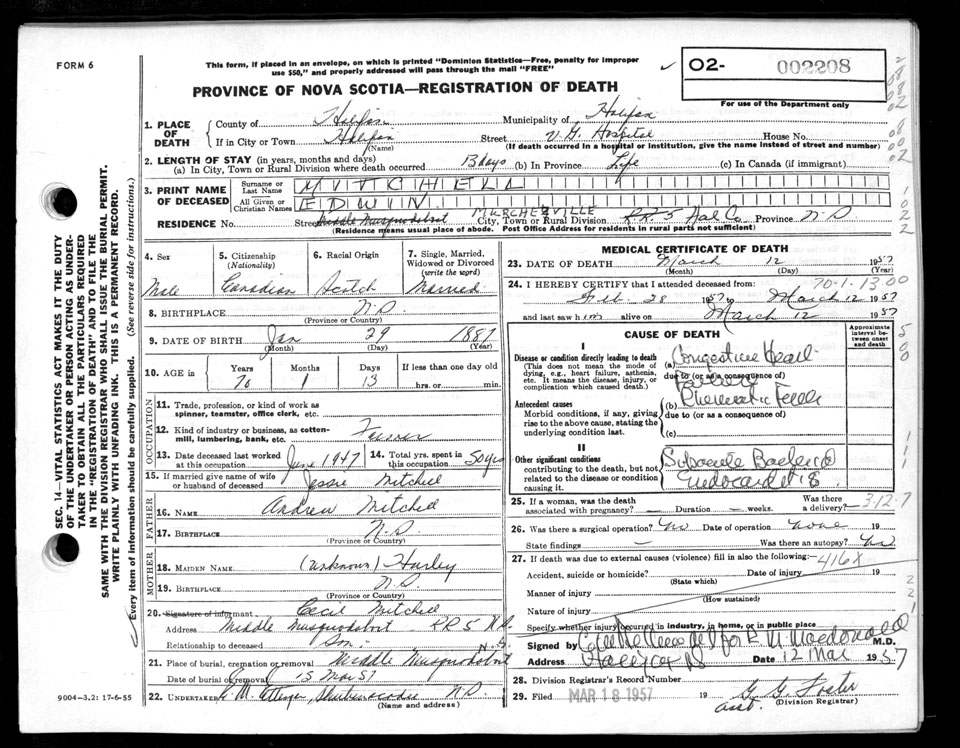 FORM 6
This form, if placed in an envelope, on which is printed "Dominion Statistics—Free, penalty for improper
use $50," and properly addressed will pass through the mail "FREE"
PROVINCE OF NOVA SCOTIA—REGISTRATION OF DEATH
02- 002208
For use of the Department only
1. PLACE OF DEATH
County of Halifax Municipality of Halifax
If in City or Town Halifax Street V. G. Hospital House No.
(Name) (If death occurred in a hospital or institution, give the name instead of street and number)
2. LENGTH OF STAY (in years, months and days)
(a) In City, Town or Rural Division where death occurred 13 days (b) In Province Life (c) In Canada (if immigrant)
3. PRINT NAME OF DECEASED
Surname or Last Name MITCHELL
All Given or Christian Names EDWIN
RESIDENCE No. Street Middle Musquodoboit MURCHEVILLE City, Town or Rural Division RR 5 Hal Co Province N.S
(Residence means usual place of abode. Post Office Address for residents in rural parts not sufficient)
4. Sex
Male
5. Citizenship
(Nationality)
Canadian
6. Racial Origin
Scotch
7. Single, Married, Widowed or Divorced
(write the word)
Married
8. BIRTHPLACE N.S.
(Province or Country)
9. DATE OF BIRTH Jan 29 1887
(Month) (Day) (Year)
10. AGE in
Years Months Days If less than one day old
70 1 13 hrs. or min.
OCCUPATION
11. Trade, profession, or kind of work as
spinner, teamster, office clerk, etc.
12. Kind of industry or business, as cotton-
mill, lumbering, bank, etc. Farmer
13. Date deceased last worked
at this occupation June 1947
14. Total yrs. spent in
this occupation 50 yrs
15. If married give name of wife
or husband of deceased Jessie Mitchell
FATHER
16. NAME Andrew Mitchell
17. BIRTHPLACE N.S.
(Province or Country)
MOTHER
18. MAIDEN NAME (unknown) Hurley
19. BIRTHPLACE N.S
(Province or Country)
20. Signature of informant Cecil Mitchell
Address Middle Musquodoboit RR 5 N.S.
Relationship to deceased Son
21. Place of burial, cremation or removal Middle Musquodoboit N.S.
Date of burial or removal 15 Mar 57
22. Undertaker Shubenacadie N.S.
(Name and address)
9004-3.2: 17-6-55
SEC. 14—VITAL STATISTICS ACT MAKES IT THE DUTY
OF THE UNDERTAKER OR PERSON ACTING AS UNDER-
TAKER TO OBTAIN ALL THE PARTICULARS REQUIRED
IN THE "REGISTRATION OF DEATH" AND TO FILE THE
SAME WITH THE DIVISION REGISTRAR WHO SHALL ISSUE THE BURIAL PERMIT.
WRITE PLAINLY WITH UNFADING INK. THIS IS A PERMANENT RECORD.
Every item of information should be carefully supplied. (See reverse side for instructions.)
MEDICAL CERTIFICATE OF DEATH
23. DATE OF DEATH March 12 1957
(Month) (Day) (Year)
24. I HEREBY CERTIFY that I attended deceased from: 70-1-13.00
Feb. 28 1957 to March 12 1957
and last saw him alive on March 12 1957
CAUSE OF DEATH
Approximate interval between onset and death
I
Disease or condition directly leading to death
(This does not mean the mode of
dying, e.g., heart failure, asthenia,
etc. It means the disease, injury, or
complication which caused death.)
(a) Congestive Heart Failure
due to (or as a consequence of)
Antecedent causes
Morbid conditions, if any, giving
rise to the above cause, stating the
underlying condition last.
(b) Rheumatic Fever
due to (or as a consequence of)
(c)
II
Other significant conditions
contributing to the death, but not
related to the disease or condition
causing it.
Subacute Bacterial
Endocarditis
25. If a woman, was the death
associated with pregnancy? — Duration — weeks. Was there
a delivery? 312.7
26. Was there a surgical operation? No Date of operation none 19
State findings — Was there an autopsy? No
27. If death was due to external causes (violence) fill in also the following:— 416X
Accident, suicide or homicide? Date of injury 19
(State which)
Manner of injury
(How sustained)
Nature of injury
Specify whether injury occurred in industry, in home, or in public place
Signed by for Macdonald M.D.
Address Halifax NS Date 12 Mar 1957
28. Division Registrar's Record Number
29. Filed MAR 18 1957 19 G. G. Foster
asst. (Division Registrar)